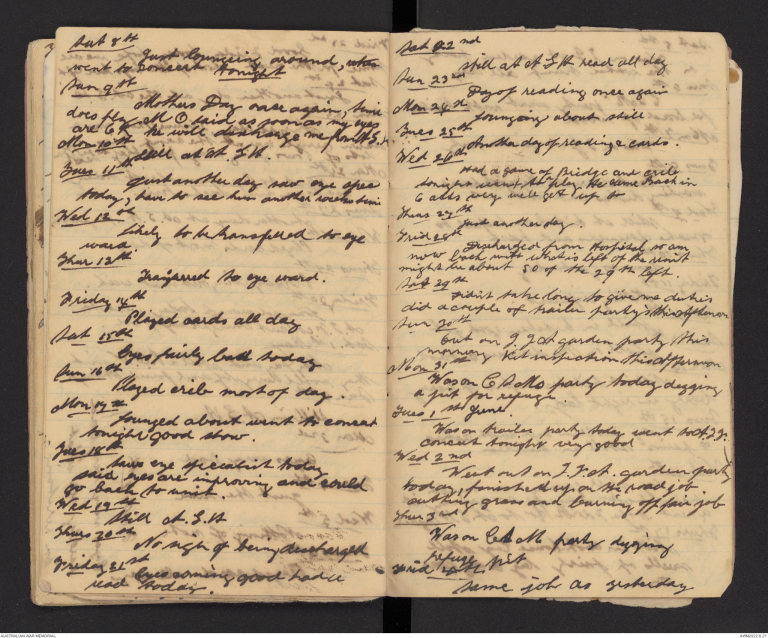 Sat 8th
Just loungeing around, was
went to concert tonight
Sun 9th
Mothers Day once again, time
does fly. M O said as soon as my eyes
are OK he will discharge me from A.G.H.
Mon 10th
Still at A G.H.
Tues 11th
Just another day saw eye spec
today, have to see him another time
Wed 12th
Likely to be transfelled to eye
ward.
Thur 13th
Trasferred to eye ward.
Friday 14th
Played cards all day
Sat 15th
Eyes fairly bad today
Sun 16th
Played crib most of day.
Mon 17th
Lounged about went to concert
tonight good show.
Tues 18th
Saw eye specialist today
said eyes are improving and could
go back to unit.
Wed 19th
Still A.G.H
Thurs 20th
No sign of being discharged
Friday 21st
Eyes coming good had a
read today.
Sat 22nd
Still at A G H read all day
Sun 23rd
Day of reading once again
Mon 24th
Lounging about still
Tues 25th
Another day of reading & cards.
Wed 26th
Had a game of Bridge and crib
tonight went to play. He came back in
6 a very well get up to
Thurs 27th
Just another day.
Frid 28th
Discharged from Hospital so am
now back with what is left of the unit
might be about 50 of the 29th left.
Sat 29th
Didn't take long to give me duties
did a couple of trailer party's this afternoon
Sun 30th
Out on garden party this
morning Kit inspection this afternoon
Mon 31st
Was on party today degging
a pit for refuge.
Tues 1st June.
Was on trailer party today went to
concert tonight very good
Wed 2nd
Went out on garden party
today, finished up on the road job
cutting grass and burning off fair job
Thur 3rd
Was on party degging
refuge pit
Frid 4th
Same job as yesterday
AUSTRALIAN WAR MEMORIAL